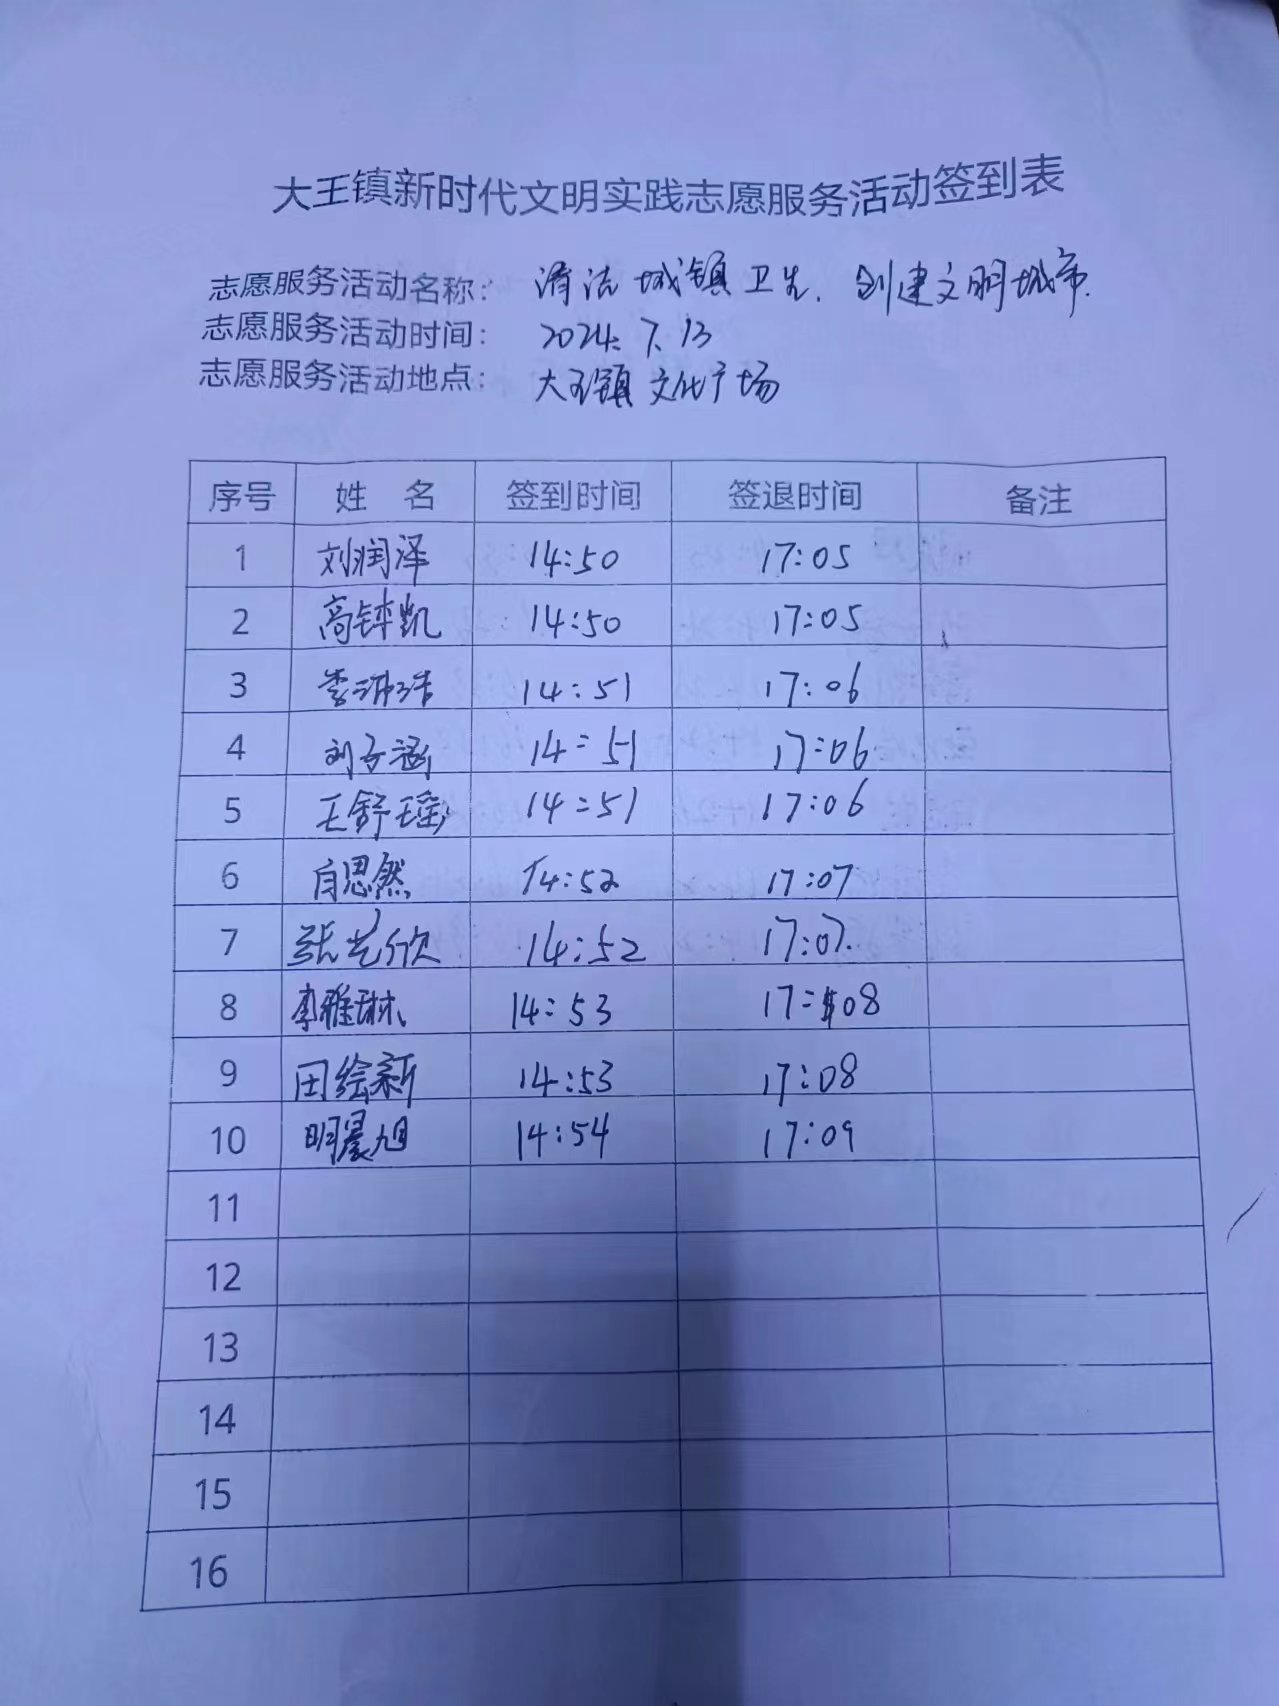 大王镇新时代文明实践志愿服务活动签到表
志愿服务活动名称： 清洁城镇卫生，创建文明城市.
志愿服务活动时间： 2024.7.13
志愿服务活动地点： 大王镇文化广场
序号 姓 名 签到时间 签退时间 备注
1 刘润泽 14:50 17:05
2 高锌凯 14:50 17:05
3 李沛浩 14:51 17:06
4 刘子涵 14:51 17:06
5 王舒瑶 14:51 17:06
6 肖思然 14:52 17:07
7 张艺欣 14:52 17:07.
8 李雅琳 14:53 17:08
9 田绘新 14:53 17:08
10 明晨旭 14:54 17:09
11
12
13
14
15
16